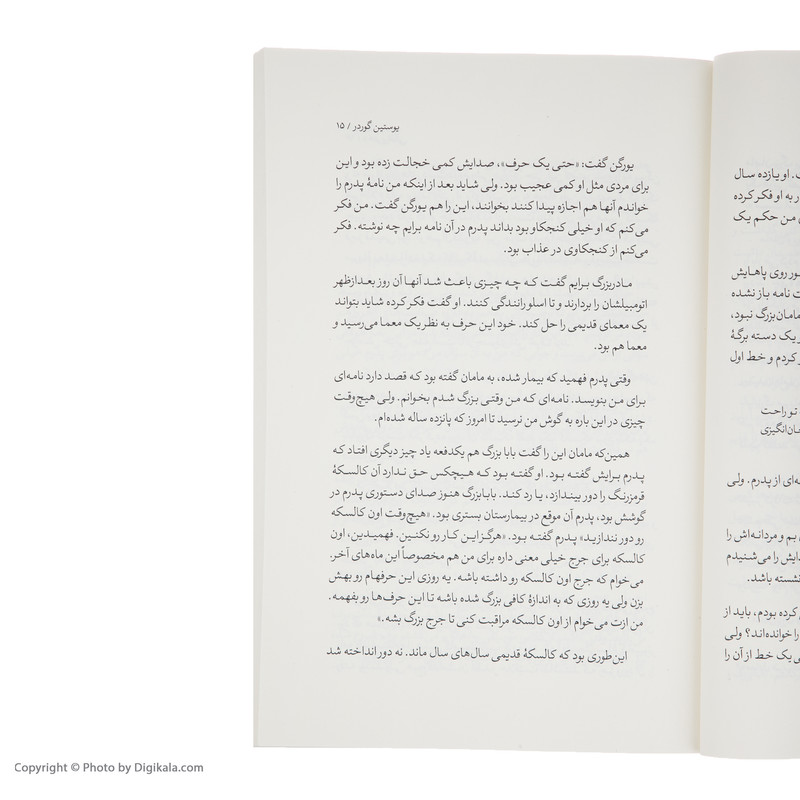 یوستین گوردر / ۱۵
یورگن گفت: «حتی یک حرف»، صدایش کمی خجالت زده بود و این
برای مردی مثل او کمی عجیب بود. ولی شاید بعد از اینکه من نامهٔ پدرم را
خواندم آنها هم اجازه پیدا کنند بخوانند، این را هم یورگن گفت. من فکر
می‌کنم که او خیلی کنجکاو بود بداند پدرم در آن نامه برایم چه نوشته. فکر
می‌کنم از کنجکاوی در عذاب بود.
مادربزرگ برایم گفت که چه چیزی باعث شد آنها آن روز بعدازظهر
اتومبیلشان را بردارند و تا اسلو رانندگی کنند. او گفت فکر کرده شاید بتواند
یک معمای قدیمی را حل کند. خود این حرف به نظر یک معما می‌رسید و
معما هم بود.
وقتی پدرم فهمید که بیمار شده، به مامان گفته بود که قصد دارد نامه‌ای
برای من بنویسد. نامه‌ای که من وقتی بزرگ شدم بخوانم. ولی هیچ‌وقت
چیزی در این باره به گوش من نرسید تا امروز که پانزده ساله شده‌ام.
همین‌که مامان این را گفت بابا بزرگ هم یکدفعه یاد چیز دیگری افتاد که
پدرم برایش گفته بود. او گفته بود که هیچکس حق ندارد آن کالسکهٔ
قرمزرنگ را دور بیندازد، یا رد کند. بابابزرگ هنوز صدای دستوری پدرم در
گوشش بود، پدرم آن موقع در بیمارستان بستری بود. «هیچ‌وقت اون کالسکه
رو دور نندازید» پدرم گفته بود. «هرگز این کار رو نکنین. فهمیدین، اون
کالسکه برای جرج خیلی معنی داره برای من هم مخصوصاً این ماه‌های آخر.
می‌خوام که جرج اون کالسکه رو داشته باشه. یه روزی این حرفهام رو بهش
بزن ولی یه روزی که به اندازهٔ کافی بزرگ شده باشه تا این حرف‌ها رو بفهمه.
من ازت می‌خوام از اون کالسکه مراقبت کنی تا جرج بزرگ بشه.»
این‌طوری بود که کالسکهٔ قدیمی سال‌های سال ماند. نه دور انداخته شد
او یازده سال
به او فکر کرده
من حکم یک
روی پاهایش
نامه باز نشده
مامان‌بزرگ نبود،
یک دسته برگهٔ
کردم و خط اول
تو راحت
از پدرم. ولی
بم و مردانه‌اش را
را می‌شنیدم
نشسته باشد.
کرده بودم، باید از
را خوانده‌اند؟ ولی
یک خط از آن را
Copyright © Photo by Digikala.com